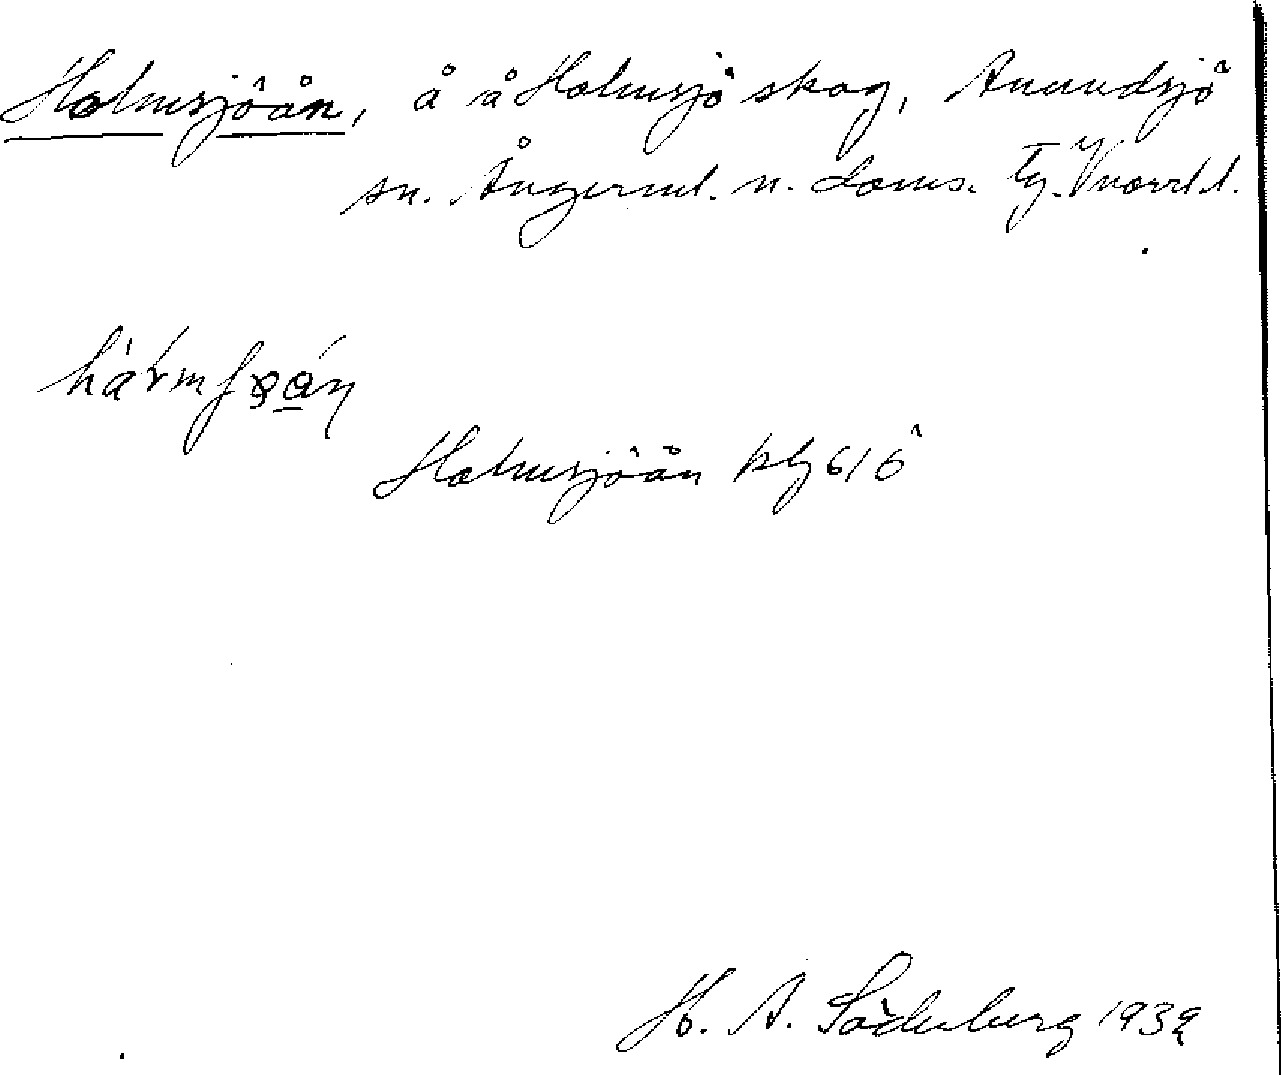 Holmsjöån, å å Holmsjö skog, Anundsjö
sn. Ångerml. n. doms. Tg. Vnorrl. l.
Holmsjöån kbl 616
H. A. Söderberg 1939